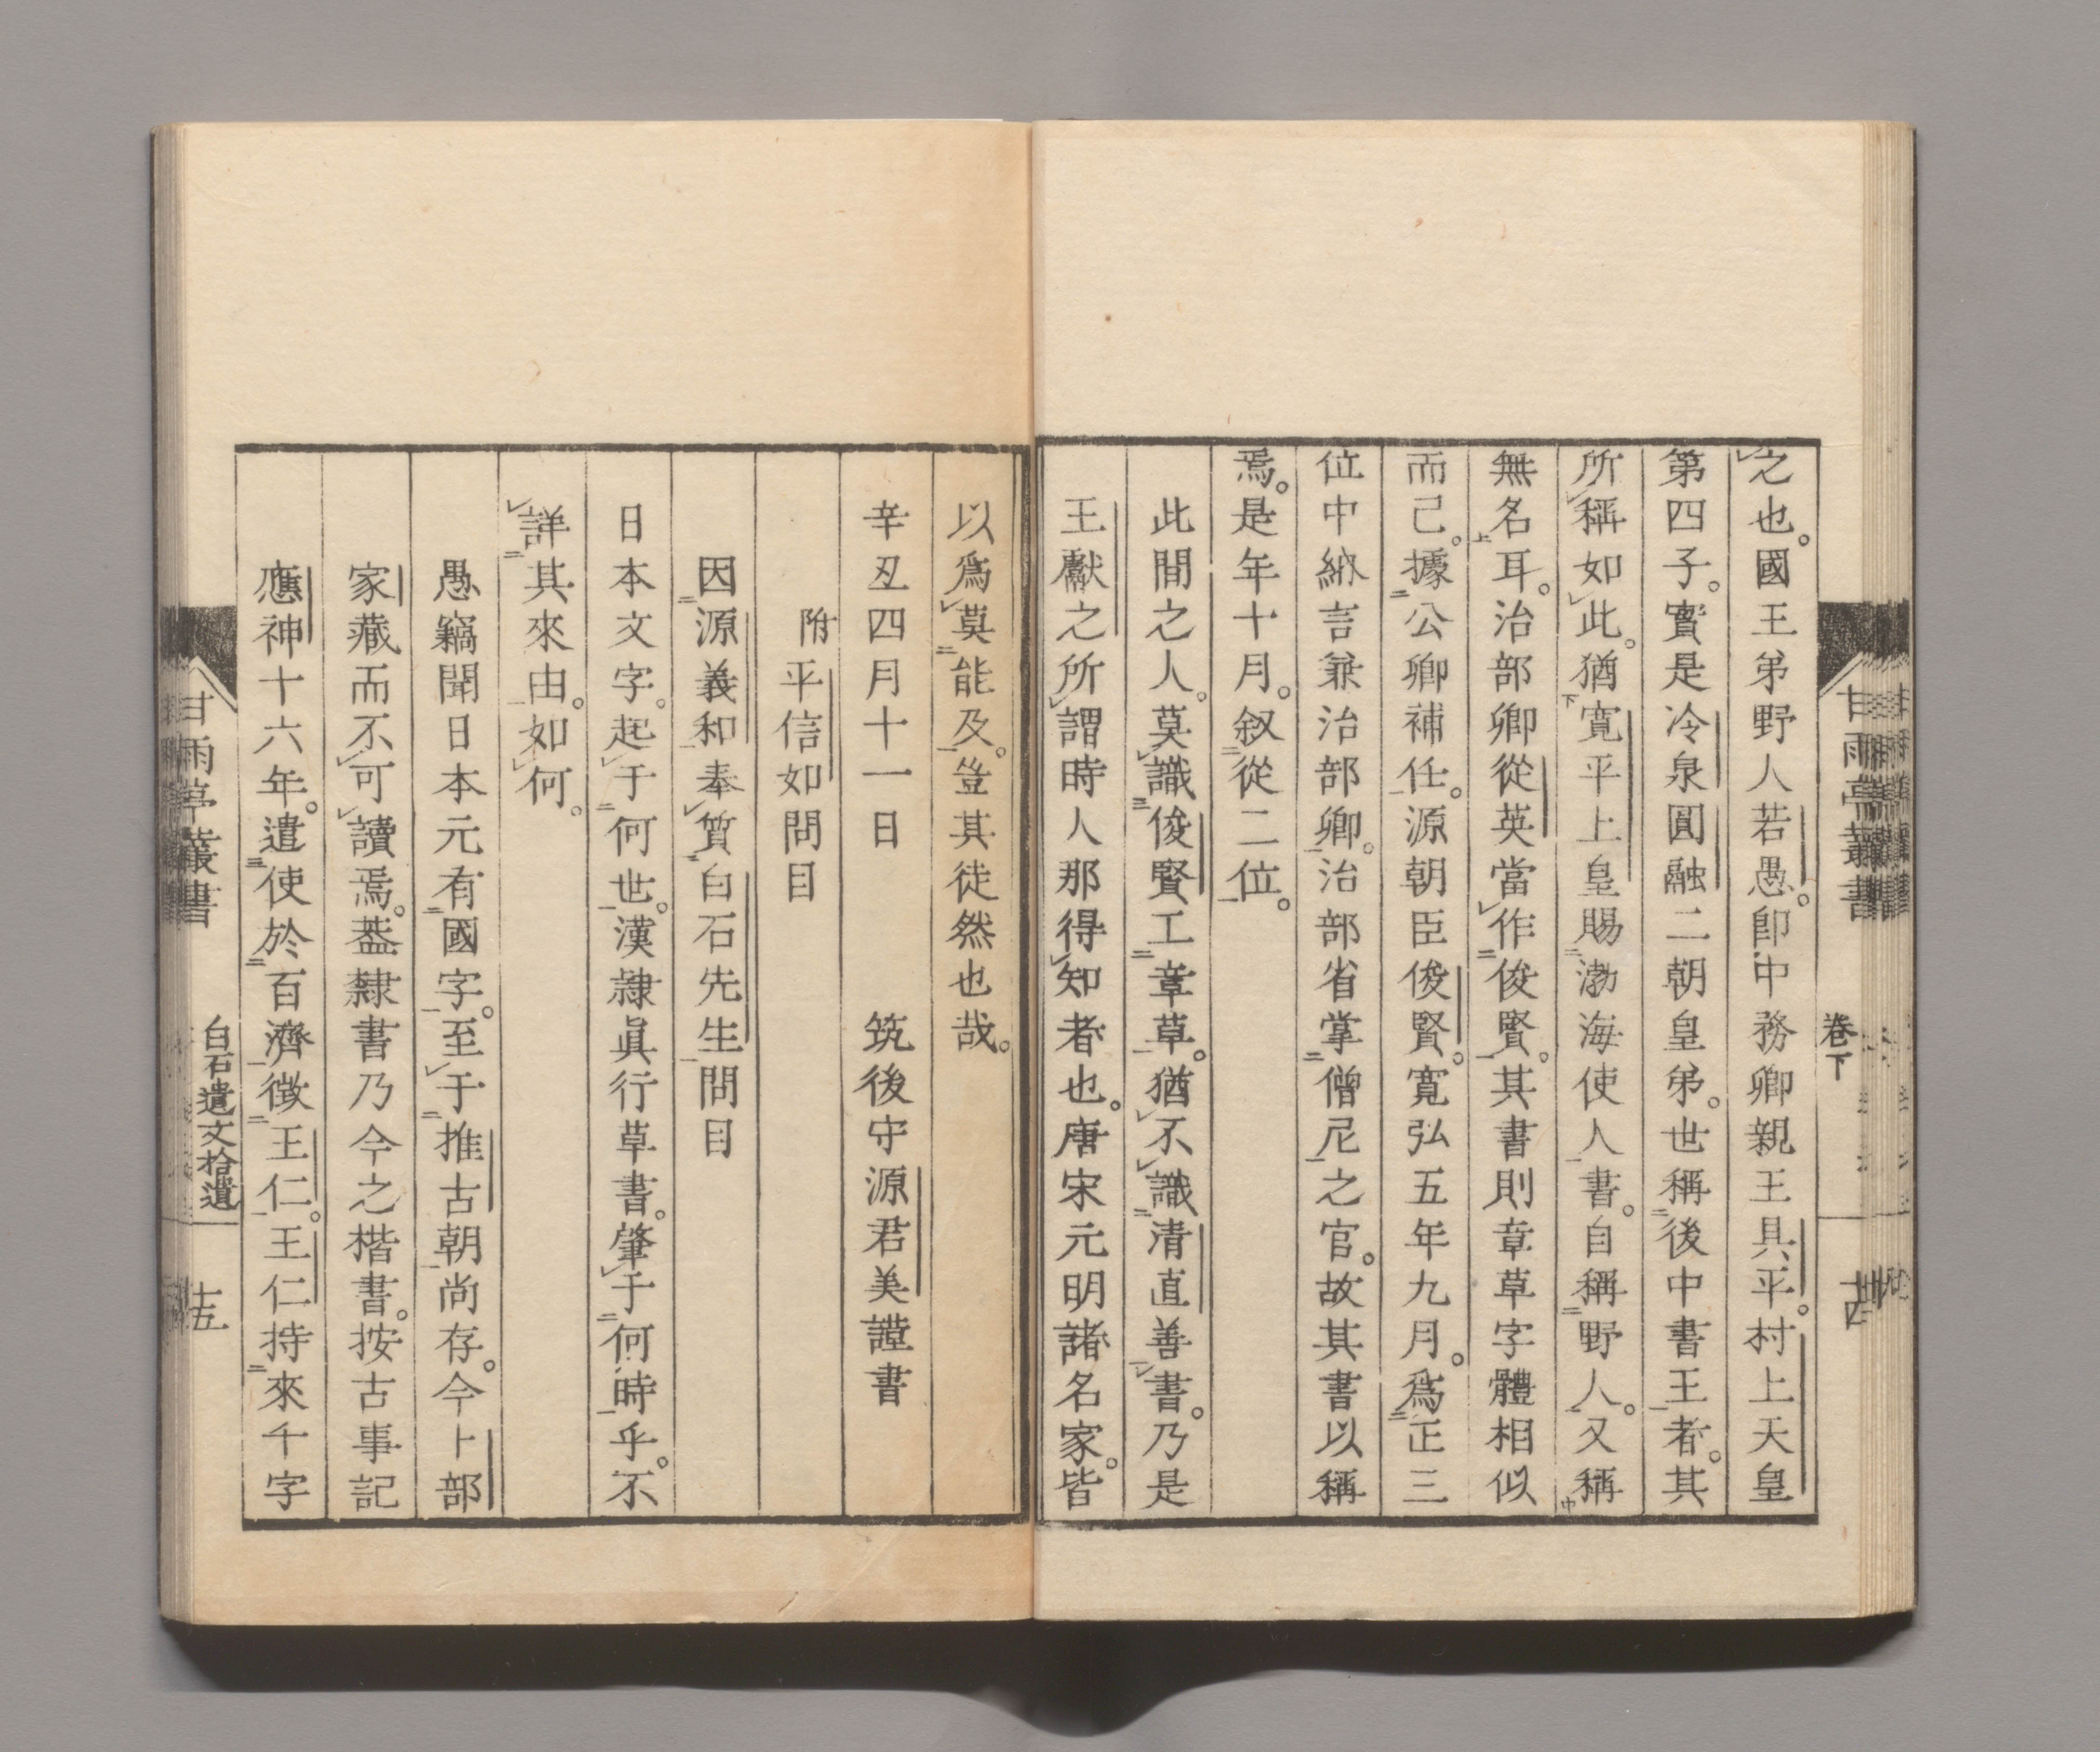 之也。國王弟野人若愚。卽中務卿親王具平。村上天皇
第四子。實是冷泉圓融二朝皇弟。世稱後中書王者。其
所稱如此。猶寬平上皇賜渤海使人書。自稱野人。又稱
無名耳。治部卿從英當作俊賢。其書則章草字體相似
而已。據公卿補任。源朝臣俊賢。寬弘五年九月。爲正三
位中納言兼治部卿。治部省掌僧尼之官。故其書以稱
焉。是年十月。叙從二位。
此間之人。莫識俊賢工章草。猶不識清直善書。乃是
王獻之所謂時人那得知者也。唐宋元明諸名家。皆
甘雨亭叢書
卷下
十四
以爲莫能及。豈其徒然也哉。
辛丑四月十一日 筑後守源君美謹書
附平信如問目
因源義和奉質白石先生問目
日本文字。起于何世。漢隷眞行草書。肇于何時乎。不
詳其來由。如何。
愚竊聞日本元有國字。至于推古朝尚存。今卜部
家藏而不可讀焉。葢隸書乃今之楷書。按古事記
應神十六年。遣使於百濟徵王仁。王仁持來千字
甘雨亭叢書
白石遺文拾遺
十五